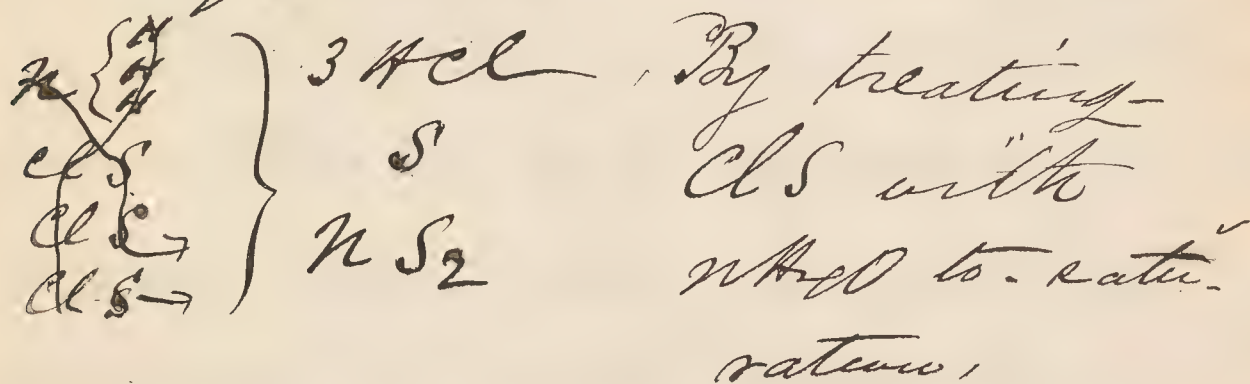 N { H
H
H
Cl S
Cl S →
Cl S →
} 3 HCl
S
N S2
By treating
Cl S with
to satu-
ration,